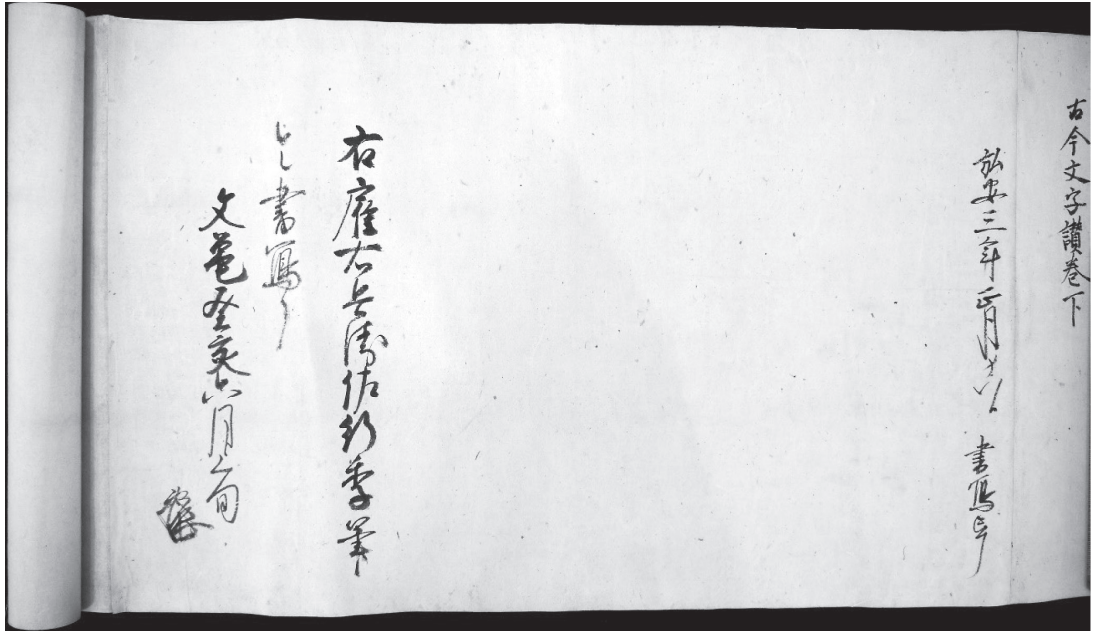 古今文字讚巻下
弘安三年正月廿八日 書寫
右雇右兵衛佐行季筆
書寫了
文亀癸亥六月上旬